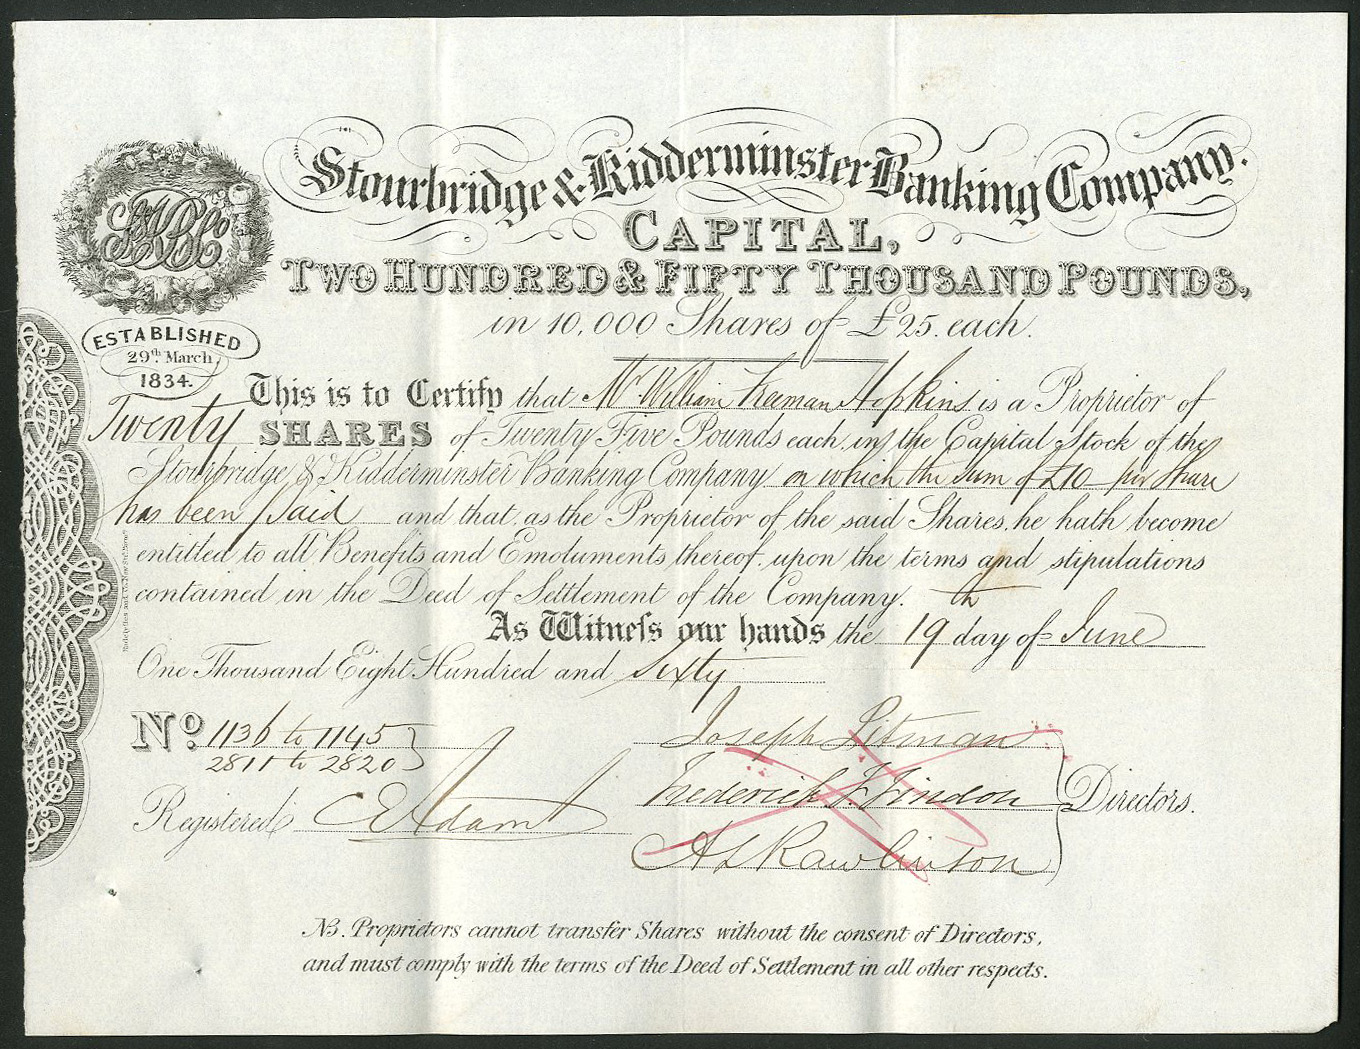 Stourbridge & Kidderminster Banking Company.
CAPITAL,
TWO HUNDRED & FIFTY THOUSAND POUNDS,
in 10,000 Shares of £25. each.
S&KBCo
ESTABLISHED
29th. March
1834.
This is to Certify that Mr. William Freeman Hopkins is a Proprietor of
Twenty SHARES of Twenty Five Pounds each, in the Capital Stock of the
Stourbridge & Kidderminster Banking Company on which the sum of £10 per Share
has been paid and that, as the Proprietor of the said Shares, he hath become
entitled to all Benefits and Emoluments thereof, upon the terms and stipulations
contained in the Deed of Settlement of the Company.
As Witneſs our hands the 19th day of June
One Thousand Eight Hundred and Sixty
No. 1136 to 1145
2811 to 2820
Registered
Joseph Pitman
Frederick F. Findon
A L Rawlinson
Directors.
NB. Proprietors cannot transfer Shares without the consent of Directors,
and must comply with the terms of the Deed of Settlement in all other respects.